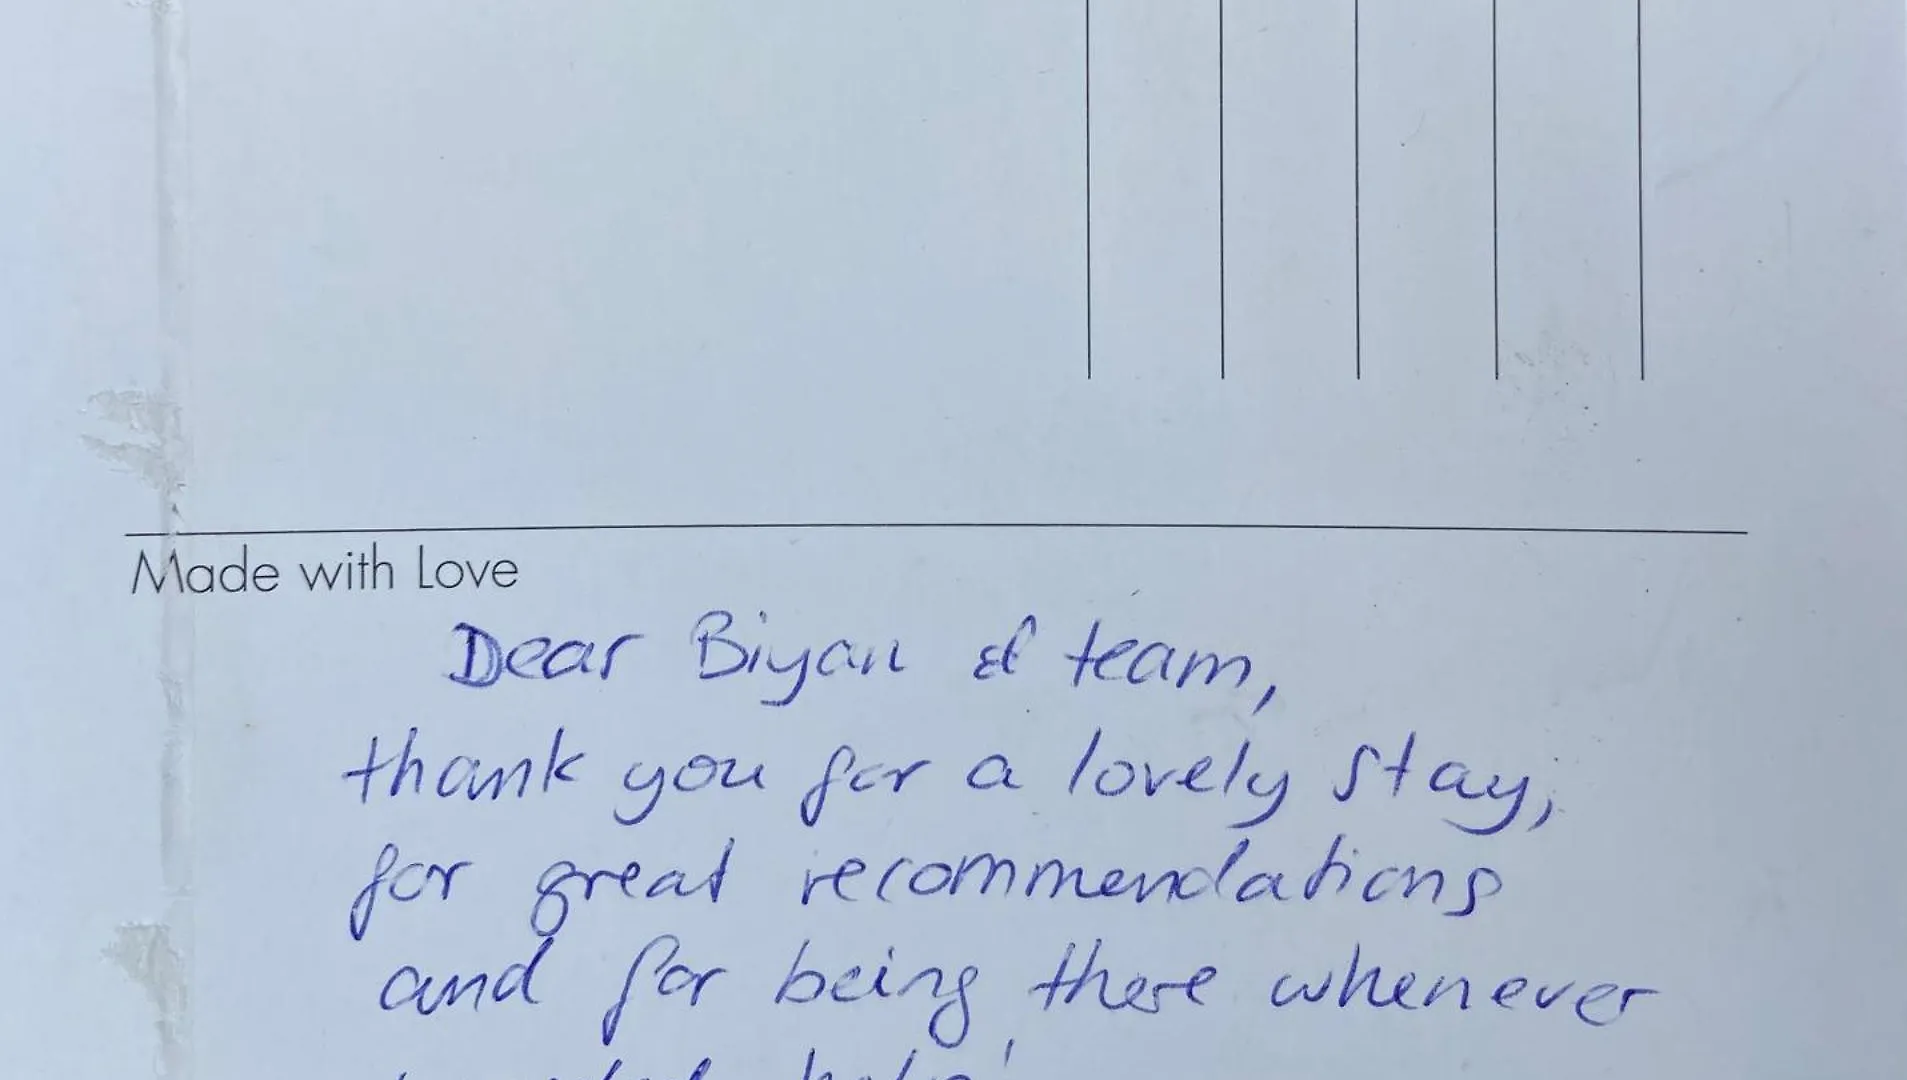 Made with Love
Dear Biyan & team,
thank you for a lovely stay,
for great recommendations
and for being there whenever